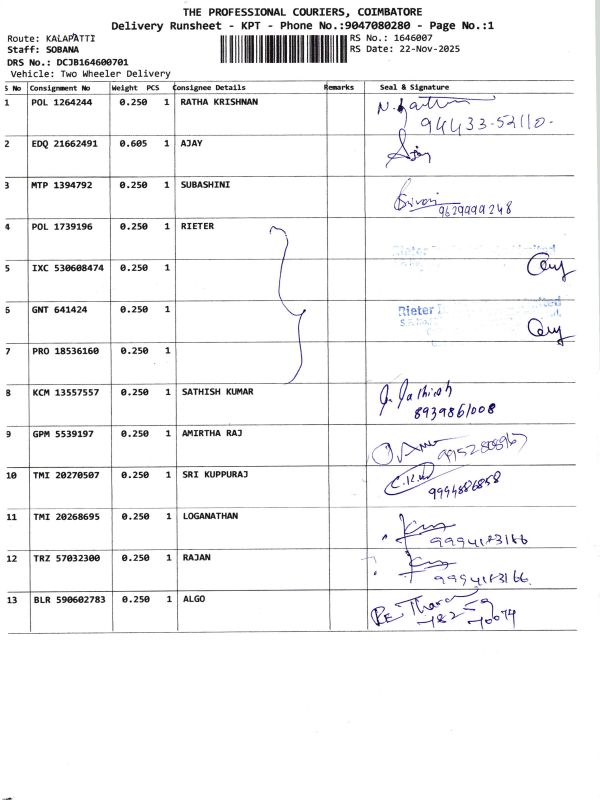 THE PROFESSIONAL COURIERS, COIMBATORE
Delivery Runsheet - KPT - Phone No.:9047080280 - Page No.:1
Route: KALAPATTI
RS No.: 1646007
Staff: SOBANA
RS Date: 22-Nov-2025
DRS No.: DCJB164600701
Vehicle: Two Wheeler Delivery
S No Consignment No Weight PCS Consignee Details Remarks Seal & Signature
1 POL 1264244 0.250 1 RATHA KRISHNAN
94433-52110-
2 EDQ 21662491 0.605 1 AJAY
Ajay
3 MTP 1394792 0.250 1 SUBASHINI
9629999248
4 POL 1739196 0.250 1 RIETER
Rieter
5 IXC 530608474 0.250 1
6 GNT 641424 0.250 1
Rieter
7 PRO 18536160 0.250 1
8 KCM 13557557 0.250 1 SATHISH KUMAR
8939861008
9 GPM 5539197 0.250 1 AMIRTHA RAJ
9952808967
10 TMI 20270507 0.250 1 SRI KUPPURAJ
9994886858
11 TMI 20268695 0.250 1 LOGANATHAN
9994183166
12 TRZ 57032300 0.250 1 RAJAN
9994183166
13 BLR 590602783 0.250 1 ALGO
78259
70074